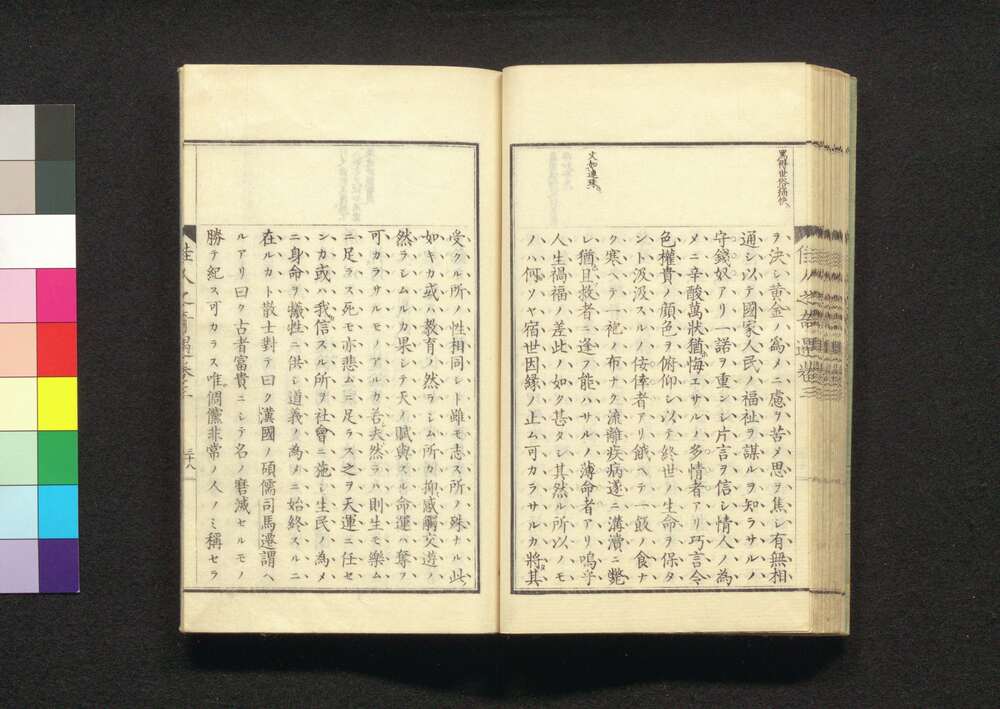 罵得世俗痛快
佳人之奇遇卷三
ヲ決シ黄金ノ爲メニ慮ヲ苦メ思ヲ焦シ有無相
通シ以テ國家人民ノ福祉ヲ謀ルヲ知ラサルノ
守錢奴アリ一諾ヲ重ンシ片言ヲ信シ情人ノ為
メニ辛酸萬狀猶悔エサルノ多情者アリ巧言令
色權貴ノ顔色ヲ俯仰シ以テ終世ノ生命ヲ保タ
ント汲汲スルノ佞倖者アリ餓ヘテ一飯ノ食ナ
ク寒ヘテ一袍ノ布ナク流離疾病遂ニ溝瀆ニ斃
レ猶且救者ニ逢フ能ハサルノ薄命者アリ嗚乎
人生禍福ノ差此ノ如ク甚タシ其然ル所以ノモ
ノハ何ソヤ宿世因縁ノ止ム可カラサルカ將其
文如連珠
受クル所ノ性相同シト雖モ志ス所ノ殊ナル此
如キカ或ハ教育ノ然ラシム所カ抑感觸交遊ノ
然ラシムルカ果シテ天ノ賦與スル命運ハ奪フ
可カラサルモノアルカ若夫然ラハ則生モ樂ム
ニ足ラス死モ亦悲ムニ足ラス之ヲ天運ニ任セ
ンカ或ハ我信スル所ヲ社會ニ施シ生民ノ為メ
ニ身命ヲ犧牲ニ供シ道義ノ為メニ始終スルニ
在ルカト散士對テ曰ク漢國ノ碩儒司馬遷謂ヘ
ルアリ曰ク古者富貴ニシテ名ノ磨滅セルモノ
勝テ紀ス可カラス唯倜儻非常ノ人ノミ稱セラ
佳人之奇遇卷三
三十八